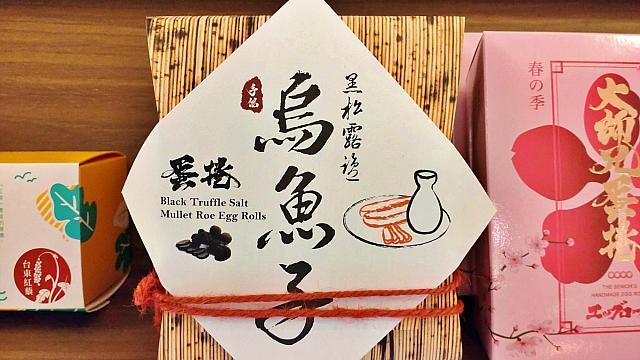 台東紅藜
手焙
黑松露鹽
烏魚子
蛋捲
Black Truffle Salt
Mullet Roe Egg Rolls
春の季
大師兄蛋捲
THE SENIOR'S
HANDMADE EGG RO
エッグロー